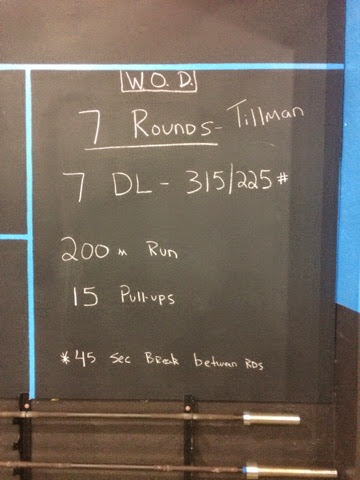 W.O.D.
7 Rounds - Tillman
7 DL - 315/225#
200 m Run
15 Pull-ups
*45 Sec Break between RDs